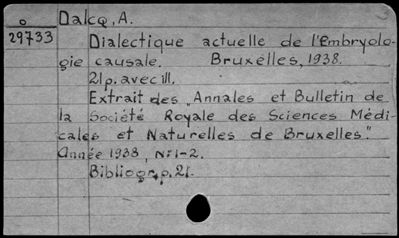 o
29733
Dalcq, A.
Dialectique actuelle de l'Embryolo-
gie causale. Bruxelles, 1938.
21p. avec ill.
Extrait des „Annales et Bulletin de
la Société Royale des Sciences Médi-
cales et Naturelles de Bruxelles."
Année 1938, N:1-2.
Bibliogr., p. 21.